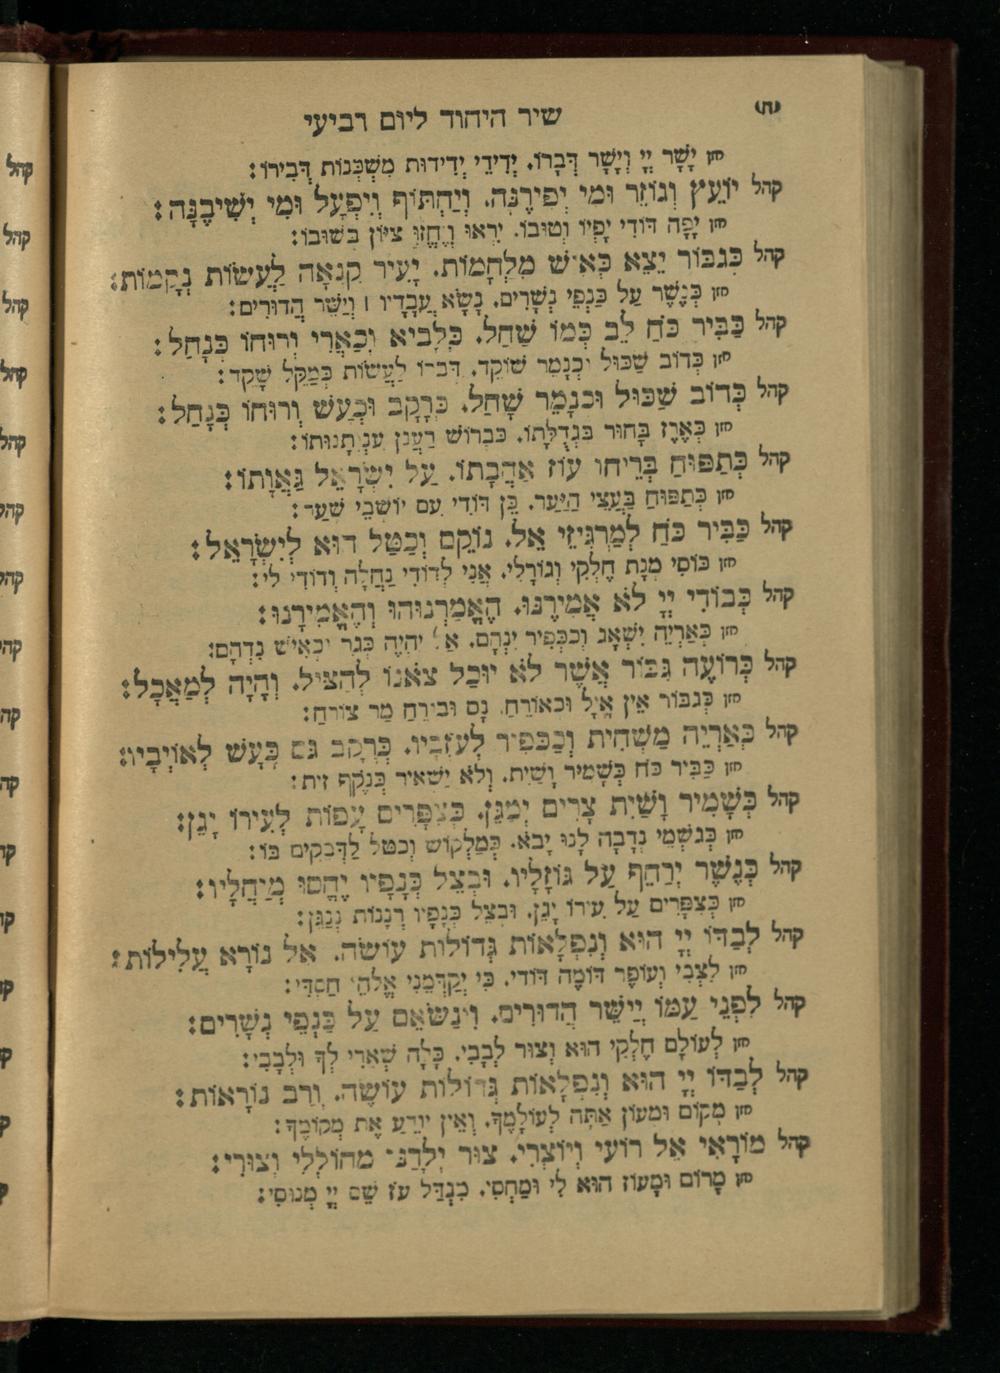 שיר היחוד ליום רביעי
חזן יָשָׁר יְיָ וְיָשָׁר דְּבָרוֹ. יְדִידֵי יְדִידוּת מִשְׁכְּנוֹת דְּבִירוֹ:
קהל יוֹעֵץ וְגוֹזֵר וּמִי יְפִירֶנָּה. וְיַחְתּוֹף וְיִפְעָל וּמִי יְשִׁיבֶנָּה:
חזן יָפֶה דוֹדִי יָפְיוֹ וְטוּבוֹ. יִרְאוּ וְיֶחֱזוּ צִיּוֹן בְּשׁוּבוֹ:
קהל כְּגִבּוֹר יֵצֵא כְּאִישׁ מִלְחָמוֹת. יָעִיר קִנְאָה לַעֲשׂוֹת נְקָמוֹת:
חזן כְּנֶשֶׁר עַל כַּנְפֵי נְשָׁרִים. נָשָׂא עֲבָדָיו וְיַשֵּׁר הֲדוּרִים:
קהל כַּבִּיר כֹּחַ לֵב כְּמוֹ שַׁחַל. כְּלָבִיא וְכַאֲרִי וְרוּחוֹ כְּנַחַל:
חזן כְּדוֹב שַׁכּוּל וּכְנָמֵר שׁוֹקֵד. דְּבָרוֹ לַעֲשׂוֹת כְּמַקֵּל שָׁקֵד:
קהל כְּדוֹב שַׁכּוּל וּכְנָמֵר שָׁחַל. כְּרָקָב וּכְעָשׁ וְרוּחוֹ כְּנַחַל:
חזן כְּאֶרֶז בָּחוּר בִּגְדֻלָּתוֹ. כִּבְרוֹשׁ רַעֲנָן עִנְוְתָנוּתוֹ:
קהל כְּתַפּוּחַ בְּרֵיחוֹ עוֹז אַהֲבָתוֹ. עַל יִשְׂרָאֵל גַּאֲוָתוֹ:
חזן כְּתַפּוּחַ בַּעֲצֵי הַיַּעַר. כֵּן דּוֹדִי עִם יוֹשְׁבֵי שַׁעַר:
קהל כַּבִּיר כֹּחַ לְמַרְגִּיזֵי אֵל. נוֹקֵם וְכַטַּל הוּא לְיִשְׂרָאֵל:
חזן כּוֹסִי מְנָת חֶלְקִי וְגוֹרָלִי. אֲנִי לְדוֹדִי נַחֲלָה וְדוֹדִי לִי:
קהל כְּבוֹדִי יְיָ לֹא אֲמִירֶנּוּ. הֶאֱמַרְנוּהוּ וְהֶאֱמִירָנוּ:
חזן כְּאַרְיֵה יִשְׁאָג וְכִכְפִיר יִנְהָם. אַל יִהְיֶה כְּגֵר וּכְאִישׁ נִדְהָם:
קהל כְּרוֹעֶה גִבּוֹר אֲשֶׁר לֹא יוּכַל צֹאנוֹ לְהַצִּיל. וְהָיָה לְמַאֲכָל:
חזן כְּגִבּוֹר אֵין אֱיָל וּכְאוֹרֵחַ. נָם וּבוֹרֵחַ מַר צוֹרֵחַ:
קהל כְּאַרְיֵה מַשְׁחִית וְכַכְּפִיר לְעוֹזְבָיו. כְּרָקָב גַּם כָּעָשׁ לְאוֹיְבָיו:
חזן כַּבִּיר כֹּחַ כְּשָׁמִיר וָשַׁיִת. וְלֹא יַשְׁאִיר כְּנֹקֶף זַיִת:
קהל כְּשָׁמִיר וָשַׁיִת צָרִים יְמַגֵּן. כְּצִפֳּרִים עָפוֹת לְעִירוֹ יָגֵן:
חזן כְּגִשְׁמֵי נְדָבָה לָנוּ יָבֹא. כְּמַלְקוֹשׁ וְכַטַּל לַדְּבֵקִים בּוֹ:
קהל כְּנֶשֶׁר יְרַחֵף עַל גּוֹזָלָיו. וּבְצֵל כְּנָפָיו יֶחֱסוּ מְיַחֲלָיו:
חזן כְּצִפֳּרִים עַל עִירוֹ יָגֵן. וּבְצֵל כְּנָפָיו רְנָנוֹת נְנַגֵּן:
קהל לְבַדּוֹ יְיָ הוּא וְנִפְלָאוֹת גְּדוֹלוֹת עוֹשֶׂה. אֵל נוֹרָא עֲלִילוֹת:
חזן לִצְבִי וְעוֹפֶר דּוֹמֶה דוֹדִי. כִּי יְקַדְּמֵנִי אֱלֹהֵי חַסְדִּי:
קהל לִפְנֵי עַמּוֹ יְיַשֵּׁר הֲדוּרִים. וִינַשְּׂאֵם עַל כַּנְפֵי נְשָׁרִים:
חזן לְעוֹלָם חֶלְקִי הוּא וְצוּר לְבָבִי. כָּלָה שְׁאֵרִי לְךָ וּלְבָבִי:
קהל לְבַדּוֹ יְיָ הוּא וְנִפְלָאוֹת גְּדוֹלוֹת עוֹשֶׂה. וְרַב נוֹרָאוֹת:
חזן מְקוֹם וּמְעוֹן אַתָּה לְעוֹלָמֶךָ. וְאֵין יוֹדֵעַ אֶת מְקוֹמֶךָ:
קהל מוֹרָאִי אֵל רוֹעִי וְיוֹצְרִי. צוּר יְלָדַנִי מְחוֹלְלִי וְצוּרִי:
חזן מָרוֹם וּמָעוֹז הוּא לִי וּמַחְסִי. מִגְדַּל עֹז שֵׁם יְיָ מְנוּסִי:
קהל
קהל
קהל
קהל
קהל